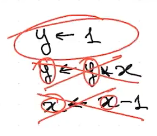 y ← 1
y ← y * x
x ← x - 1